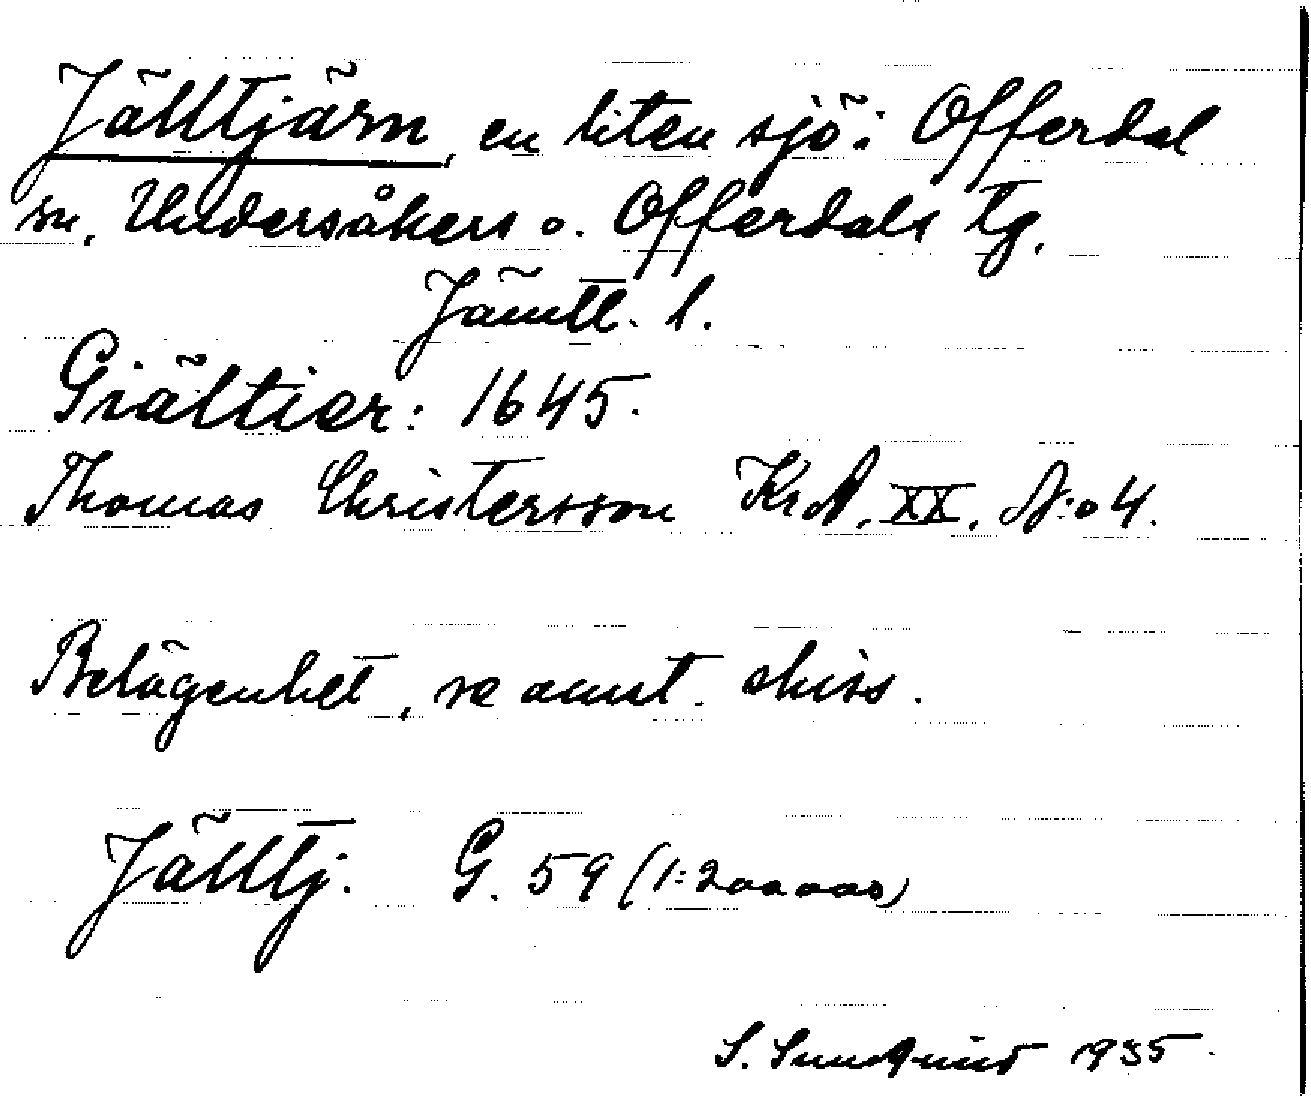 Jälltjärn, en liten sjö i Offerdal
sn, Undersåkers o. Offerdals tg.
Jämtl. l.
Giältier: 1645.
Thomas Christersson KrA. XX. N:o 4.
Belägenhet, se amt. skiss.
Jälltj. G. 59 (1:200000)
S. Sundqvist 1935.